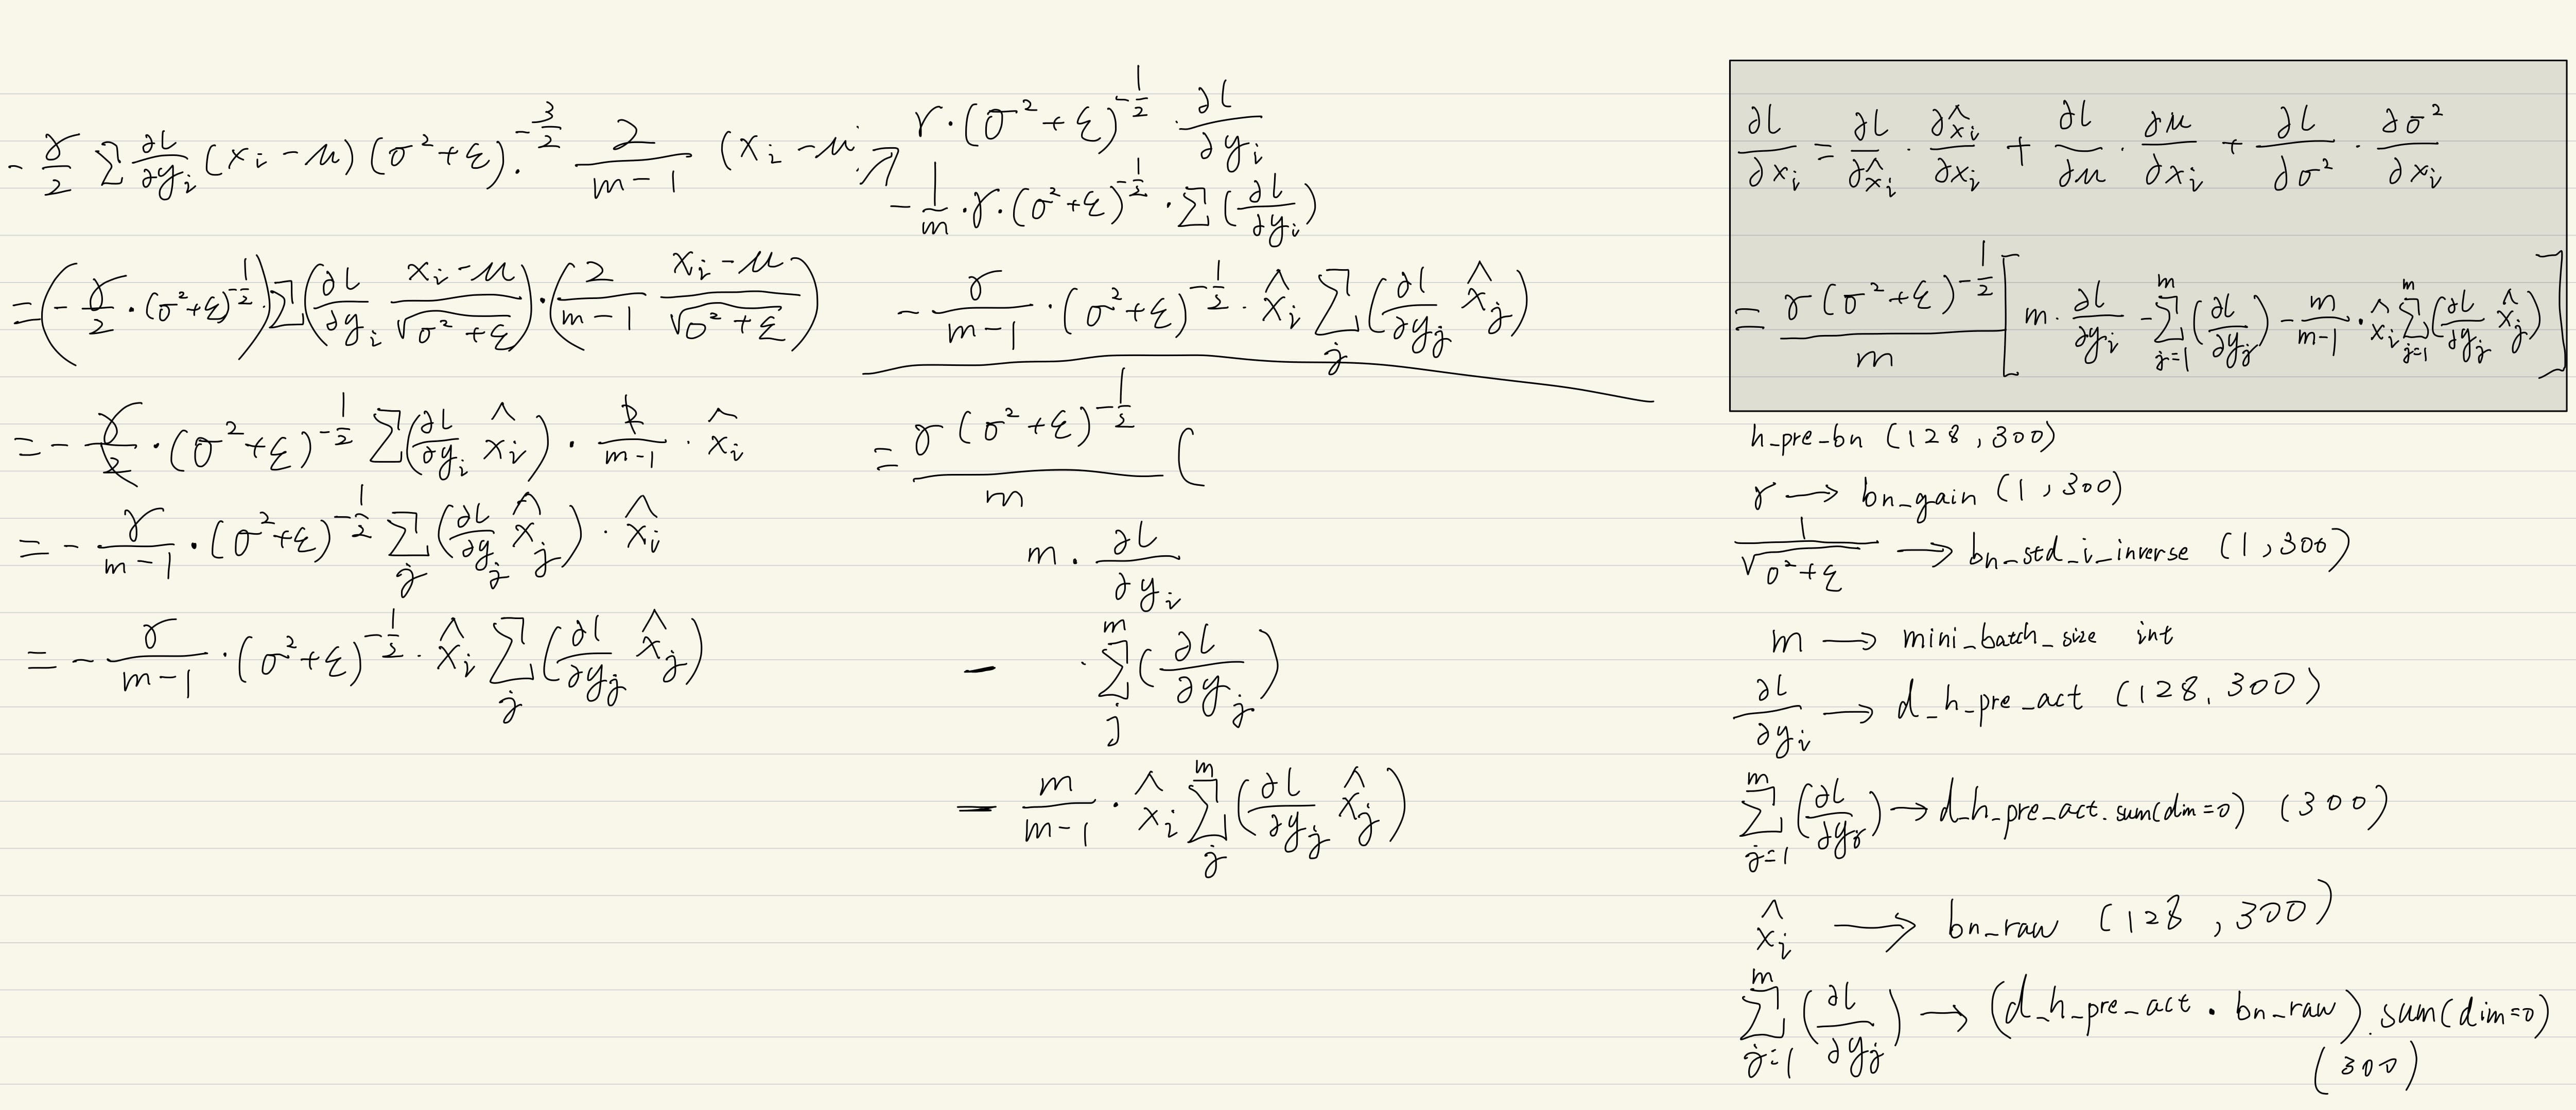 -γ/2 Σ ∂l/∂y_i (x_i - μ) (σ² + ε)^(-3/2) · 2/(m-1) (x_i - μ)
= (-γ/2 · (σ² + ε)^(-1/2)) Σ(∂l/∂y_i (x_i - μ)/√(σ² + ε)) · (2/(m-1) (x_i - μ)/√(σ² + ε))
= -γ/2 · (σ² + ε)^(-1/2) Σ(∂l/∂y_i x̂_i) · 2/(m-1) · x̂_i
= -γ/(m-1) · (σ² + ε)^(-1/2) Σ_j (∂l/∂y_j x̂_j) · x̂_i
= -γ/(m-1) · (σ² + ε)^(-1/2) · x̂_i Σ_j (∂l/∂y_j x̂_j)
γ · (σ² + ε)^(-1/2) · ∂l/∂y_i
- 1/m · γ · (σ² + ε)^(-1/2) · Σ(∂l/∂y_i)
- γ/(m-1) · (σ² + ε)^(-1/2) · x̂_i Σ_j (∂l/∂y_j x̂_j)
= γ(σ² + ε)^(-1/2)/m (
m · ∂l/∂y_i
- · Σ_j^m (∂l/∂y_j)
- m/(m-1) · x̂_i Σ_j^m (∂l/∂y_j x̂_j)
∂l/∂x_i = ∂l/∂x̂_i · ∂x̂_i/∂x_i + ∂l/∂μ · ∂μ/∂x_i + ∂l/∂σ² · ∂σ²/∂x_i
= γ(σ² + ε)^(-1/2)/m [m · ∂l/∂y_i - Σ_{j=1}^m (∂l/∂y_j) - m/(m-1) · x̂_i Σ_{j=1}^m (∂l/∂y_j x̂_j)]
h_pre_bn (128, 300)
γ → bn_gain (1, 300)
1/√(σ² + ε) → bn_std_i_inverse (1, 300)
m → mini_batch_size int
∂l/∂y_i → d_h_pre_act (128, 300)
Σ_{j=1}^m (∂l/∂y_j) → d_h_pre_act.sum(dim=0) (300)
x̂_i → bn_raw (128, 300)
Σ_{j=1}^m (∂l/∂y_j) → (d_h_pre_act · bn_raw).sum(dim=0)
(300)